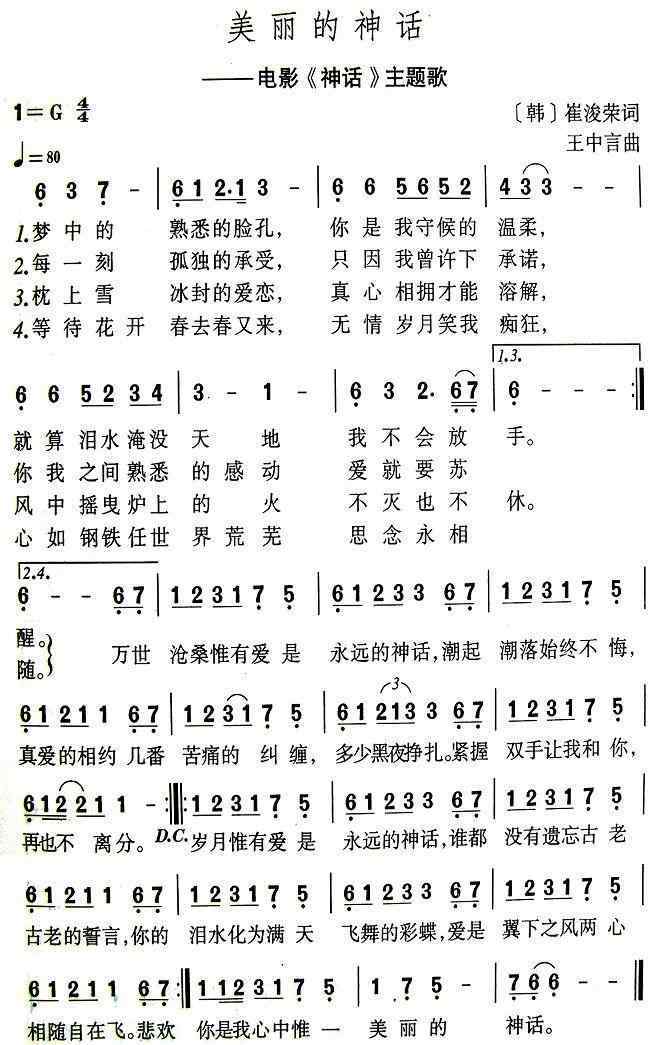 美丽的神话
——电影《神话》主题歌
1=G 4/4
〔韩〕崔浚荣词
♩=80
王中言曲
6 3 7 - | 6 1 2·1 3 - | 6 6 5 6 5 2 | 4 3 3 - - |
1.梦中的 熟悉的脸孔, 你是我守候的 温柔,
2.每一刻 孤独的承受, 只因我曾许下 承诺,
3.枕上雪 冰封的爱恋, 真心相拥才能 溶解,
4.等待花开 春去春又来, 无情岁月笑我 痴狂,
1.3.
6 6 5 2 3 4 | 3 - 1 - | 6 3 2· 6 7 | 6 - - :‖
就算泪水淹没 天地 我不会放 手。
你我之间熟悉 的感动 爱就要苏
风中摇曳炉上 的火 不灭也不 休。
心如钢铁任世 界荒芜 思念永相
2.4.
6 - - 6 7 | 1 2 3 1 7 5 | 6 1 2 3 3 6 7 | 1 2 3 1 7 5 |
醒。
随。} 万世 沧桑惟有爱是 永远的神话,潮起 潮落始终不悔,
3
6 1 2 1 1 6 7 | 1 2 3 1 7 5 | 6 1 2 1 3 3 6 7 | 1 2 3 1 7 5 |
真爱的相约几番 苦痛的纠缠, 多少黑夜挣扎。紧握 双手让我和你,
6 1 2 2 2 1 1 - :‖: 1 2 3 1 7 5 | 6 1 2 3 3 6 7 | 1 2 3 1 7 5 |
再也不 离分。 D.C. 岁月惟有爱是 永远的神话,谁都 没有遗忘古老
6 1 2 1 1 6 7 | 1 2 3 1 7 5 | 6 1 2 3 3 6 7 | 1 2 3 1 7 5 |
古老的誓言,你的 泪水化为满天 飞舞的彩蝶,爱是 翼下之风两心
6 1 2 1 1 6 7 :‖ 1 2 3 1 7 5 | 1 7 5 - | 7 6 6 - - ‖
相随自在飞。悲欢 你是我心中惟一 美丽的 神话。